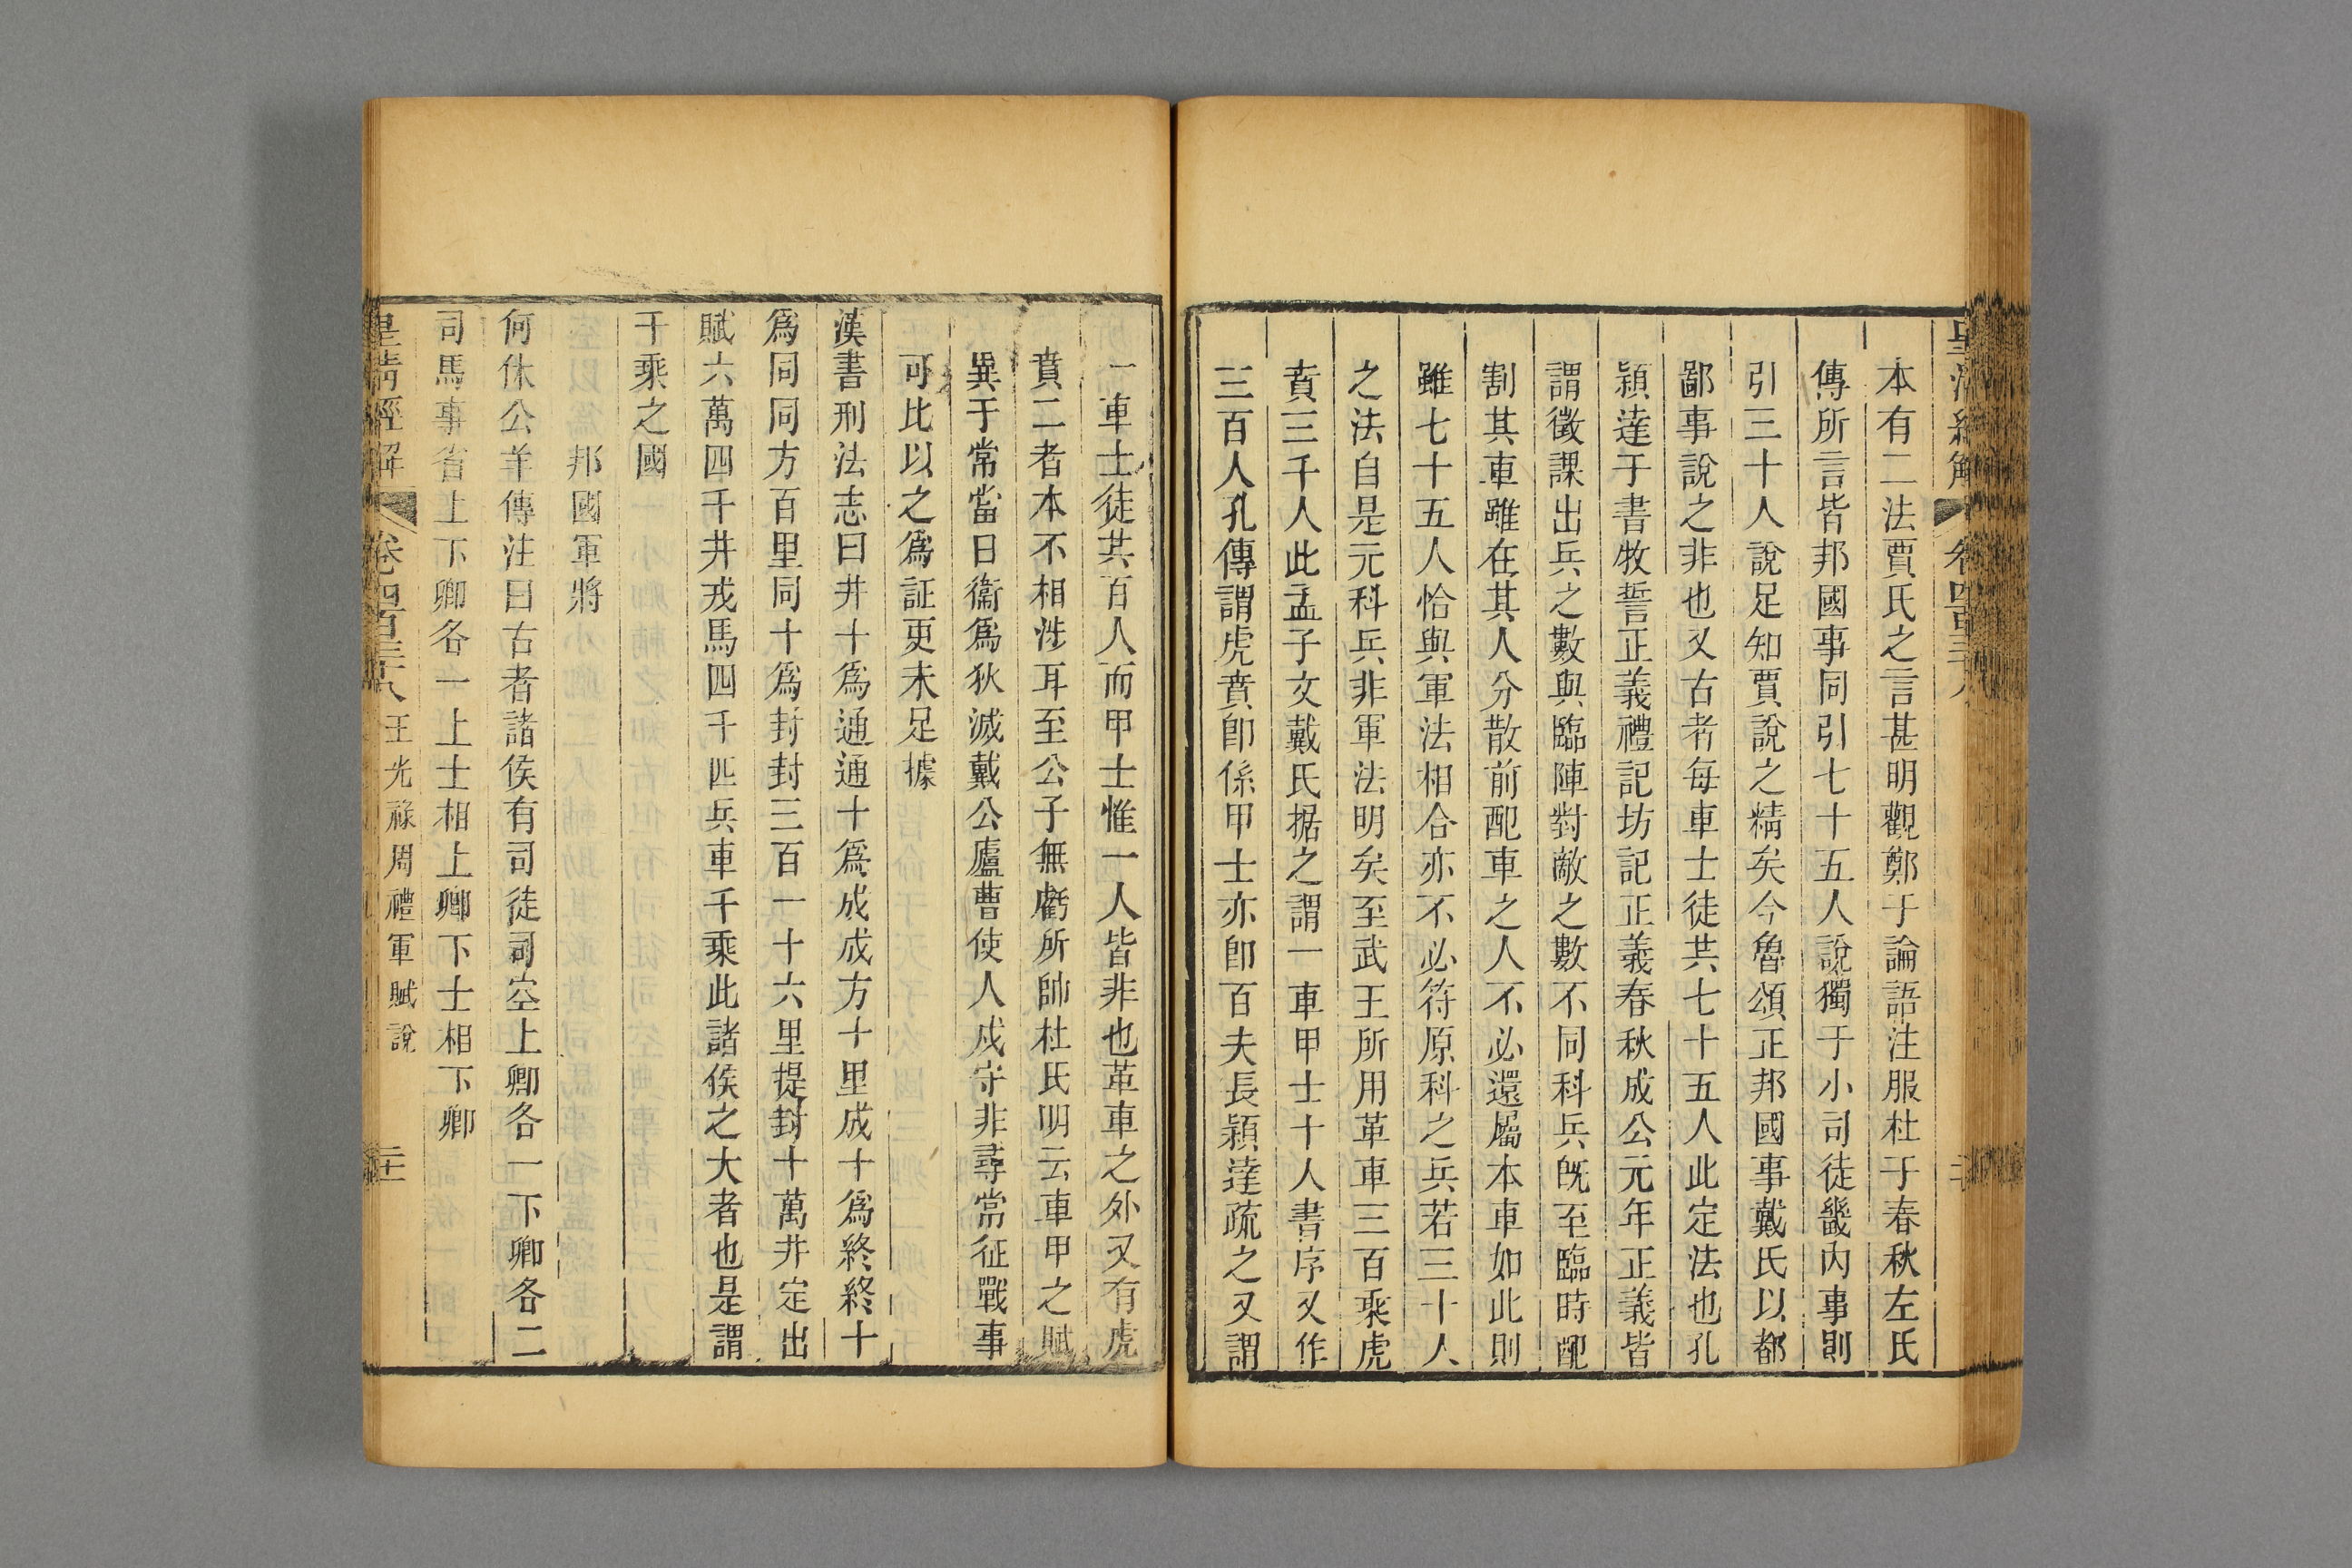 皇清經解 卷四百三十八
本有二法賈氏之言甚明觀鄭于論語注服杜于春秋左氏
傳所言皆邦國事同引七十五人說獨于小司徒畿內事則
引三十人說足知賈說之精矣今魯頌正邦國事戴氏以都
鄙事說之非也又古者每車士徒共七十五人此定法也孔
穎達于書牧誓正義禮記坊記正義春秋成公元年正義皆
謂徵課出兵之數與臨陣對敵之數不同科兵旣至臨時配
割其車雖在其人分散前配車之人不必還屬本車如此則
雖七十五人恰與軍法相合亦不必符原科之兵若三十人
之法自是元科兵非軍法明矣至武王所用革車三百乘虎
賁三千人此孟子文戴氏据之謂一車甲士十人書序又作
三百人孔傳謂虎賁卽係甲士亦卽百夫長穎達疏之又謂
一車士徒其百人而甲士惟一人皆非也革車之外又有虎
賁二者本不相涉耳至公子無虧所帥杜氏明云車甲之賦
異于常當日衞爲狄滅戴公廬曹使人戍守非尋常征戰事
可比以之爲証更未足據
漢書刑法志曰井十爲通通十爲成成方十里成十爲終終十
爲同同方百里同十爲封封三百一十六里提封十萬井定出
賦六萬四千井戎馬四千匹兵車千乘此諸侯之大者也是謂
千乘之國
邦國軍將
何休公羊傳注曰古者諸侯有司徒司空上卿各一下卿各二
司馬事省上下卿各一上士相上卿下士相下卿
皇清經解 卷四百三十八 王光祿周禮軍賦說 二十